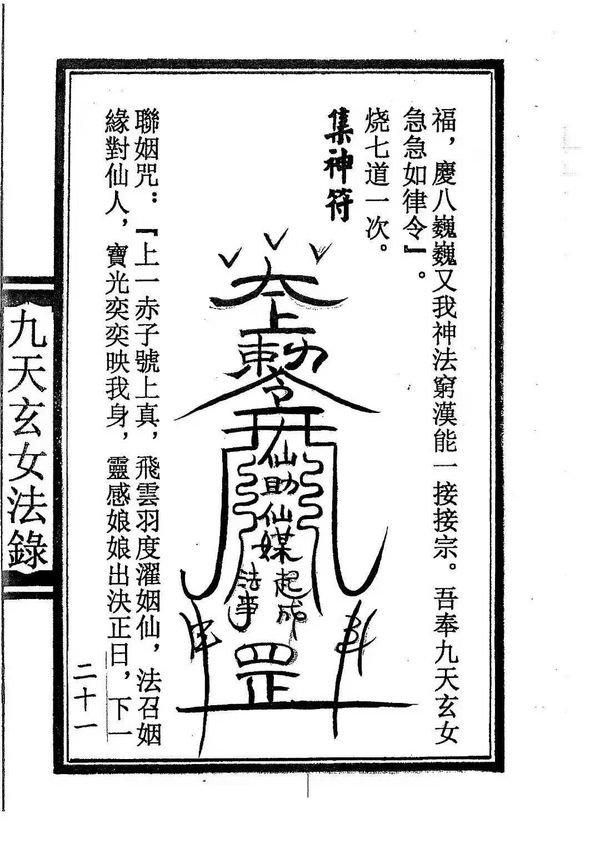 福，慶八巍巍又我神法窮漢能一接接宗。吾奉九天玄女
急急如律令』。
燒七道一次。
集神符
太上敕令
仙助仙媒
起成
法事
罡
聯姻咒：『上一赤子號上真，飛雲羽度濯姻仙，法召姻
緣對仙人，寶光奕奕映我身，靈感娘娘出決正日，下一
九天玄女法錄
二十一